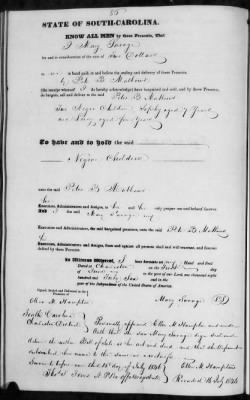 STATE OF SOUTH-CAROLINA.
KNOW ALL MEN by these Presents, That
I Mary Savage
for and in consideration of the sum of Dollars
to me in hand paid, at and before the sealing and delivery of these Presents,
by Peter B Mathews
(the receipt whereof I do hereby acknowledge) have bargained and sold, and by these Presents,
do bargain, sell and deliver to the said Peter B Mathews
Two Negro Children aged 7 Years
and aged five Years
To have and to hold the said
Negro Children
unto the said Peter B Mathews
his
Executors, Administrators and Assigns, to his and their only proper use and behoof forever.
And I the said Mary Savage my
Executors and Administrators, the said bargained premises, unto the said Peter B Mathews
his
Executors, Administrators and Assigns, from and against all persons shall and will warrant, and forever
defend by these Presents.
In Witness Whereof, I have hereunto set my Hand and Seal
Dated at Charleston on the First day
of June in the year of our Lord, one thousand eight
hundred and forty Six and in the
year of the Independence of the United States of America.
Signed, Sealed and Delivered
Ellen M Hampton Mary Savage
South Carolina
Personally appeared Ellen M Hampton and made
Oath that she saw Mary Savage sign and
deliver the within Bill of Sale as her act and deed and that she
subscribed her name to the same as a witness
Sworn to before me this 15th day of July 1846 Ellen M Hampton
Recorded 16 July 1846